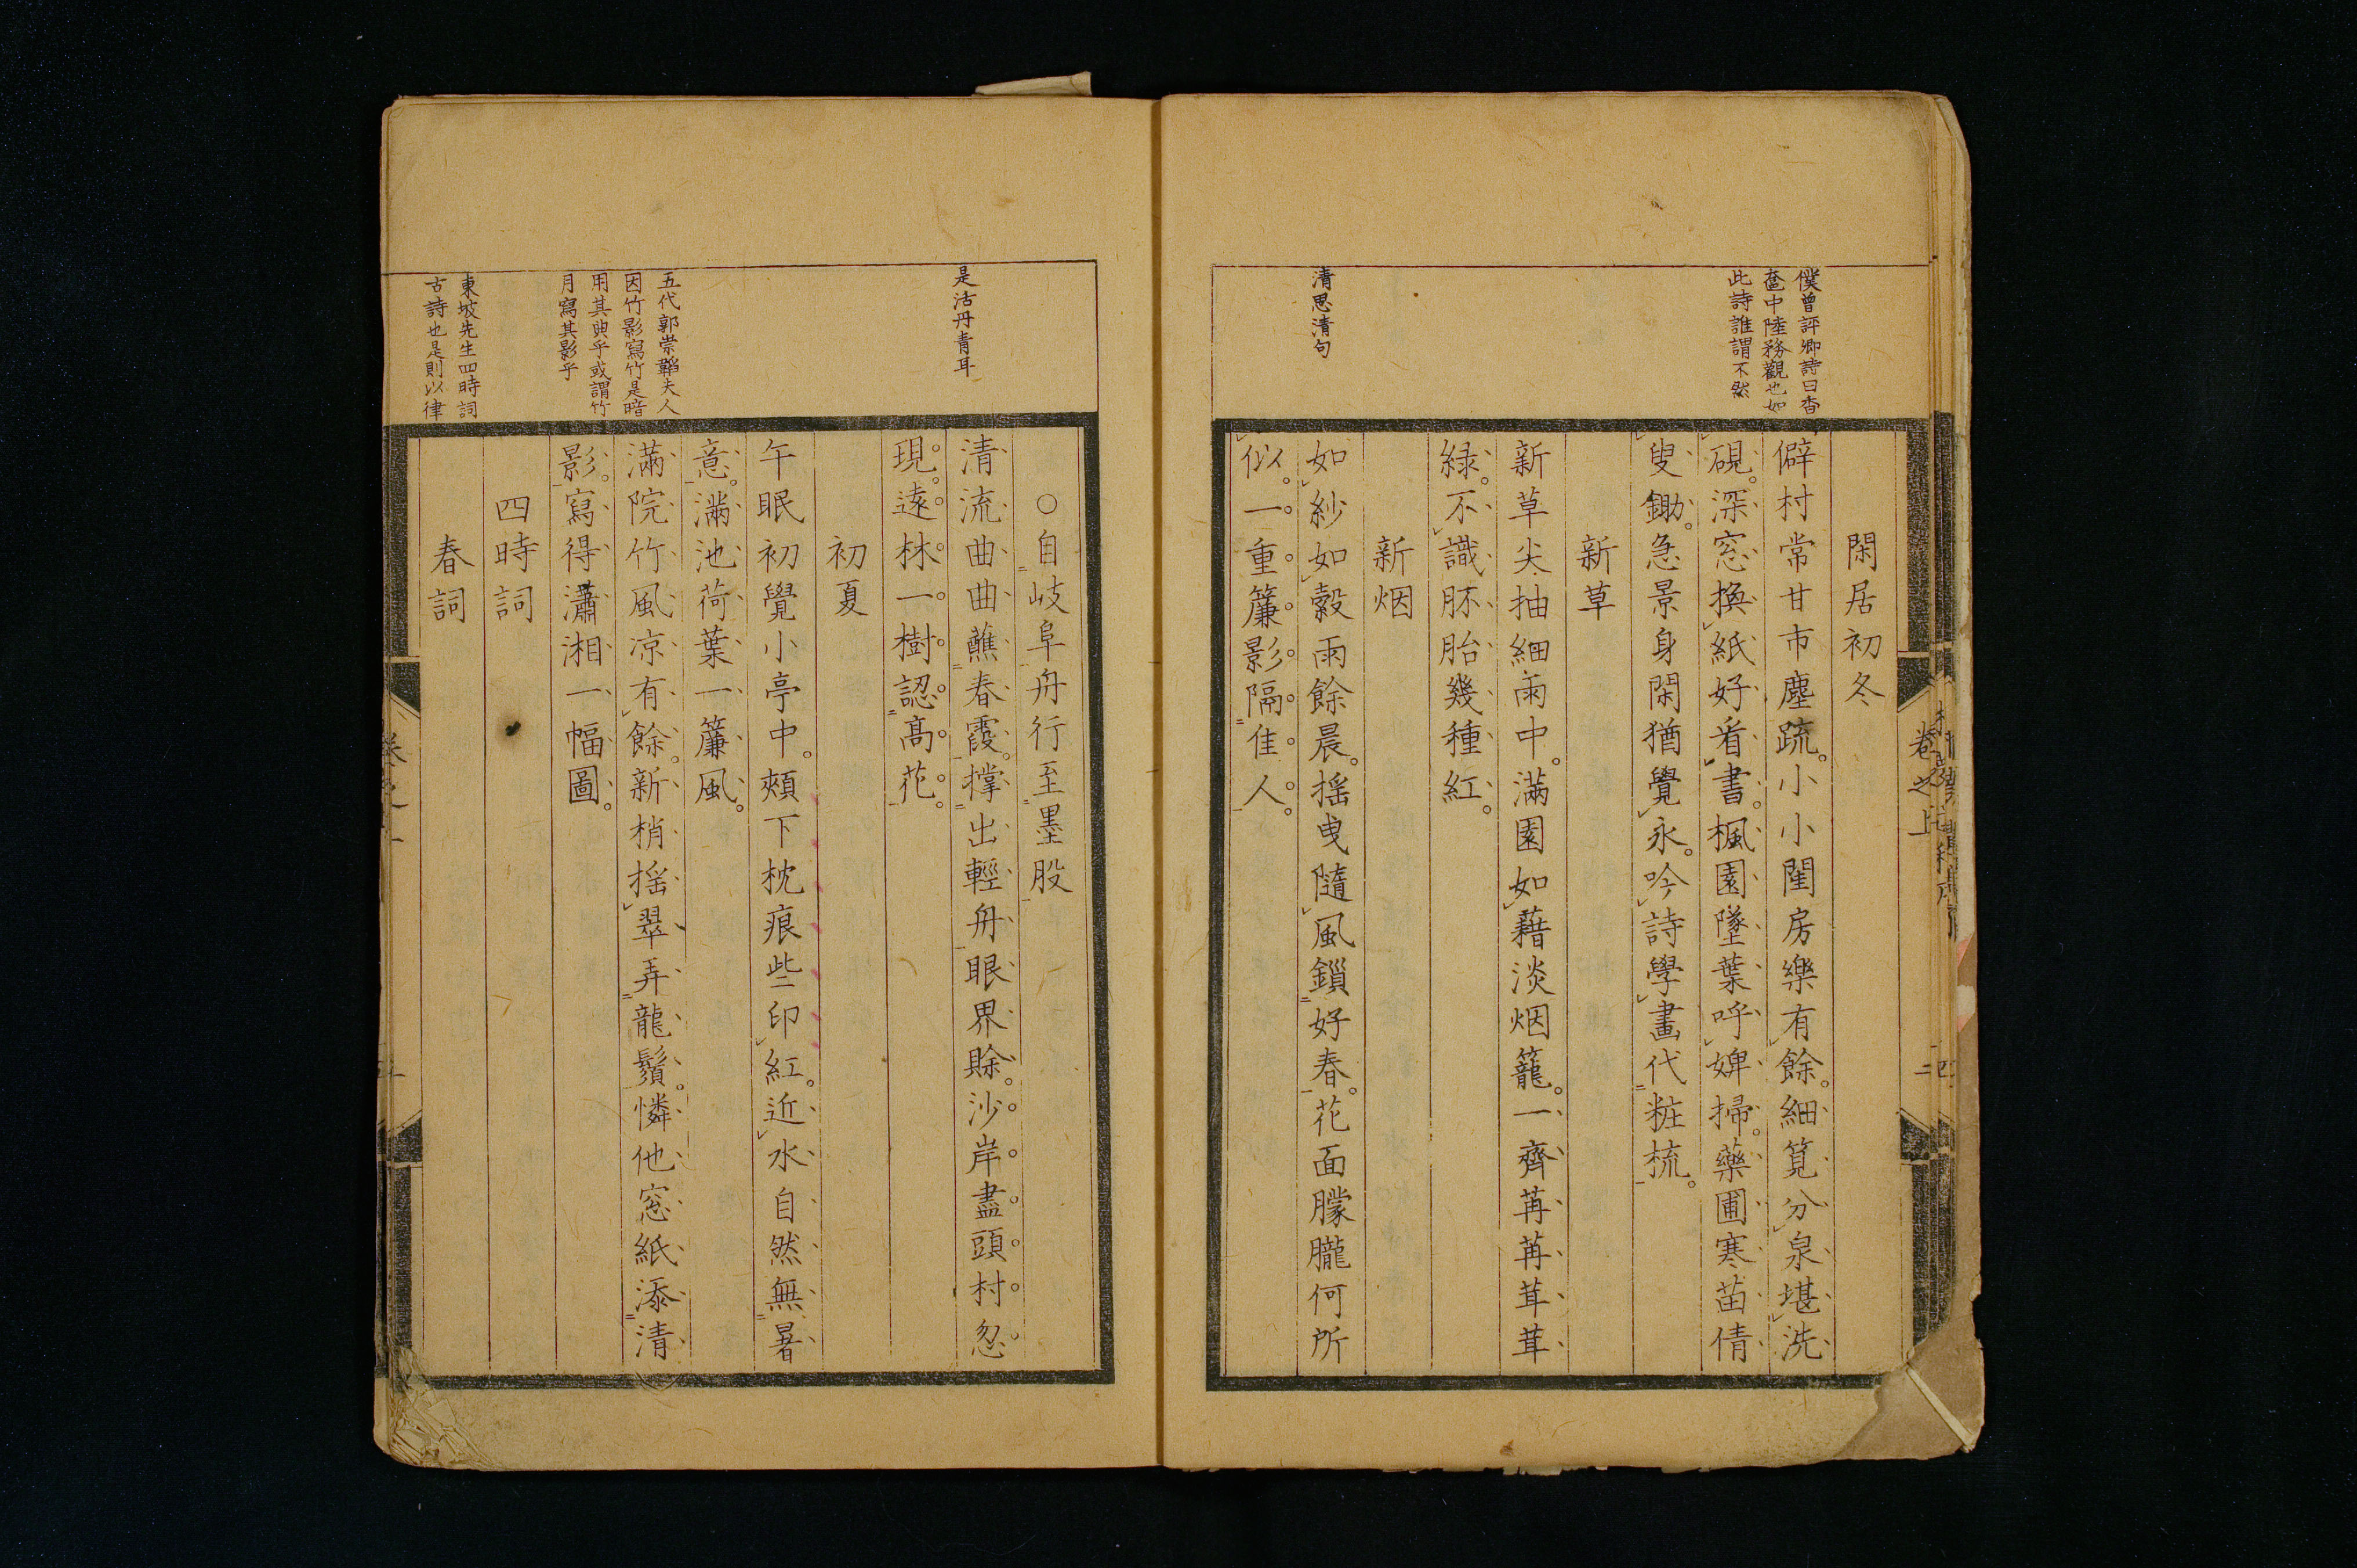 僕曾評卿詩曰杳
奩中陸務觀也如
此詩誰謂不然
閑居初冬
僻村常甘市塵疏。小小閨房樂有餘。細筧分泉堪洗
硯。深窓換紙好看書。楓園墜葉呼婢掃。藥圃寒苗倩
叟鋤。急景身閑猶覺永。吟詩學畫代粧梳。
新草
新草尖抽細雨中。滿園如藉淡烟籠。一齊苒苒茸茸
緑。不識胚胎幾種紅。
新烟
清思清句
如紗如縠雨餘晨。揺曳隨風鎖好春。花面朦朧何所
似。一重簾影隔佳人。
卷之上
四
○自岐阜舟行至墨股
是活丹青耳
清流曲曲蘸春霞。撑出輕舟眼界賒。沙岸盡頭村忽
現。遠林一樹認高花。
初夏
午眠初覺小亭中。頰下枕痕些印紅。近水自然無暑
意。滿池荷葉一簾風。
五代郭崇韜夫人
因竹影寫竹是暗
用其典乎或謂竹
月寫其影乎
滿院竹風凉有餘。新梢揺翠弄龍鬚。憐他窓紙添清
影。寫得瀟湘一幅圖。
四時詞
東坡先生四時詞
古詩也是則以律
春詞